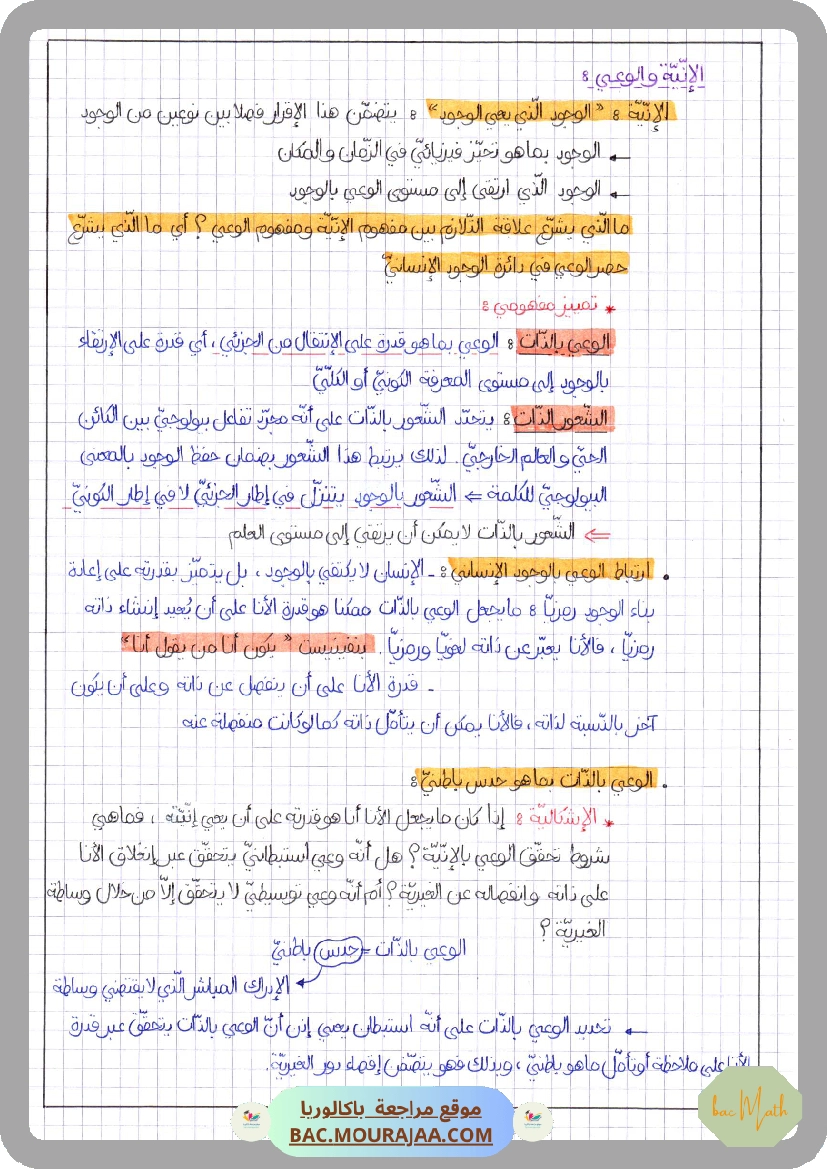 الإنّيّة والوعي :
الإنّيّة : "الوجود الّذي يعي الوجود" : يتضمّن هذا الإقرار فصلا بين نوعين من الوجود
← الوجود بما هو تحيّز فيزيائيّ في الزّمان والمكان
← الوجود الّذي ارتقى إلى مستوى الوعي بالوجود
ما الّذي يشرّع علاقة التّلازم بين مفهوم الإنّيّة ومفهوم الوعي ؟ أي ما الّذي يشرّع
حصر الوعي في دائرة الوجود الإنسانيّ
* تمييز مفهومي :
الوعي بالذّات : الوعي بما هو قدرة على الإنتقال من الجزئي ، أي قدرة على الإرتقاء
بالوجود إلى مستوى المعرفة الكونيّ أو الكلّيّ
الشّعور الذّات : يتحدّد الشّعور بالذّات على أنّه مجرّد تفاعل بيولوجيّ بين الكائن
الحيّ والعالم الخارجيّ . لذلك يرتبط هذا الشّعور بضمان حفظ الوجود بالمعنى
البيولوجيّ للكلمة ⇐ الشّعور بالوجود يتنزّل في إطار الجزئيّ لا في إطار الكونيّ
⇐ الشّعور بالذّات لا يمكن أن يرتقي إلى مستوى العلم
• ارتباط الوعي بالوجود الإنساني : - الإنسان لا يكتفي بالوجود ، بل يتميّز بقدرته على إعادة
بناء الوجود رمزيّا : ما يجعل الوعي بالذّات ممكنا هو قدرة الأنا على أن يُعيد إنشاء ذاته
رمزيّا ، فالأنا يعبّر عن ذاته لغويّا ورمزيّا . بنفينيست "يكون أنا من يقول أنا"
- قدرة الأنا على أن ينفصل عن ذاته وعلى أن يكون
آخر بالنّسبة لذاته ، فالأنا يمكن أن يتأمّل ذاته كما لو كانت منفصلة عنه
• الوعي بالذّات بما هو حدس باطنيّ :
* الإشكاليّة : إذا كان ما يجعل الأنا أنا هو قدرته على أن يعي إنّيّته ، فما هي
شروط تحقّق الوعي بالإنّيّة ؟ هل أنّه وعي استبطانيّ يتحقّق عبر إنغلاق الأنا
على ذاته وانفصاله عن الغيريّة ؟ أم أنّه وعي توسيطيّ لا يتحقّق إلاّ من خلال وساطة
الغيريّة ؟
الوعي بالذّات = حدس باطنيّ
الإدراك المباشر الّذي لا يقتضي وساطة
← تحديد الوعي بالذّات على أنّه استبطان يعني إذن أنّ الوعي بالذّات يتحقّق عبر قدرة
الأنا على ملاحظة أو تأمّل ما هو باطنيّ ، وبذلك فهو يتضّمن إقصاء دور الغيريّة.
موقع مراجعة باكالوريا
BAC.MOURAJAA.COM
bac Math